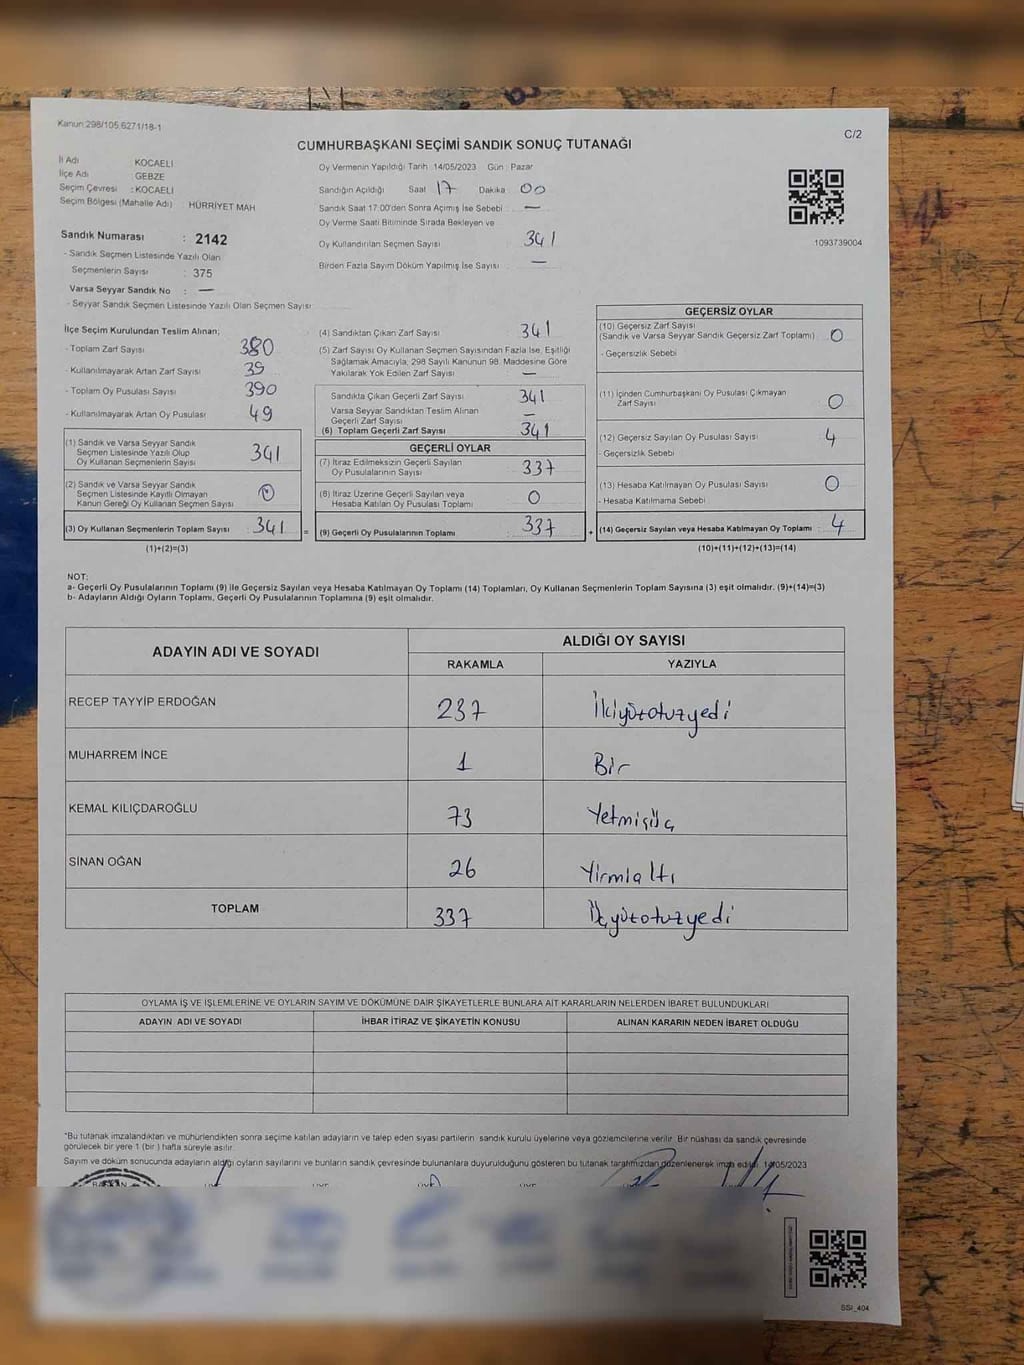 Kanun:298/105,6271/18-1
C/2
CUMHURBAŞKANI SEÇİMİ SANDIK SONUÇ TUTANAĞI
İl Adı KOCAELİ
İlçe Adı : GEBZE
Seçim Çevresi : KOCAELİ
Seçim Bölgesi (Mahalle Adı) HÜRRİYET MAH
Sandık Numarası : 2142
- Sandık Seçmen Listesinde Yazılı Olan
Seçmenlerin Sayısı : 375
Varsa Seyyar Sandık No : —
- Seyyar Sandık Seçmen Listesinde Yazılı Olan Seçmen Sayısı
Oy Vermenin Yapıldığı Tarih : 14/05/2023 Gün : Pazar
Sandığın Açıldığı Saat 17 Dakika : 00
Sandık Saat 17:00'den Sonra Açımış İse Sebebi : —
Oy Verme Saati Bitiminde Sırada Bekleyen ve
Oy Kullandırılan Seçmen Sayısı 341
Birden Fazla Sayım Döküm Yapılmış İse Sayısı : —
1093739004
İlçe Seçim Kurulundan Teslim Alınan;
- Toplam Zarf Sayısı 380
- Kullanılmayarak Artan Zarf Sayısı 39
- Toplam Oy Pusulası Sayısı 390
- Kullanılmayarak Artan Oy Pusulası 49
(1) Sandık ve Varsa Seyyar Sandık
Seçmen Listesinde Yazılı Olup
Oy Kullanan Seçmenlerin Sayısı 341
(2) Sandık ve Varsa Seyyar Sandık
Seçmen Listesinde Kayıtlı Olmayan
Kanun Gereği Oy Kullanan Seçmen Sayısı 0
(3) Oy Kullanan Seçmenlerin Toplam Sayısı : 341 =
(1)+(2)=(3)
(4) Sandıktan Çıkan Zarf Sayısı 341
(5) Zarf Sayısı Oy Kullanan Seçmen Sayısından Fazla İse, Eşitliği
Sağlamak Amacıyla, 298 Sayılı Kanunun 98. Maddesine Göre
Yakılarak Yok Edilen Zarf Sayısı —
Sandıkta Çıkan Geçerli Zarf Sayısı 341
Varsa Seyyar Sandıktan Teslim Alınan
Geçerli Zarf Sayısı —
(6) Toplam Geçerli Zarf Sayısı 341
GEÇERLİ OYLAR
(7) İtiraz Edilmeksizin Geçerli Sayılan
Oy Pusulalarının Sayısı 337
(8) İtiraz Üzerine Geçerli Sayılan veya
Hesaba Katılan Oy Pusulası Toplamı 0
(9) Geçerli Oy Pusulalarının Toplamı 337 +
GEÇERSİZ OYLAR
(10) Geçersiz Zarf Sayısı
(Sandık ve Varsa Seyyar Sandık Geçersiz Zarf Toplamı) 0
- Geçersizlik Sebebi
(11) İçinden Cumhurbaşkanı Oy Pusulası Çıkmayan
Zarf Sayısı 0
(12) Geçersiz Sayılan Oy Pusulası Sayısı 4
- Geçersizlik Sebebi
(13) Hesaba Katılmayan Oy Pusulası Sayısı 0
- Hesaba Katılmama Sebebi
(14) Geçersiz Sayılan veya Hesaba Katılmayan Oy Toplamı : 4
(10)+(11)+(12)+(13)=(14)
NOT:
a- Geçerli Oy Pusulalarının Toplamı (9) ile Geçersiz Sayılan veya Hesaba Katılmayan Oy Toplamı (14) Toplamları, Oy Kullanan Seçmenlerin Toplam Sayısına (3) eşit olmalıdır. (9)+(14)=(3)
b- Adayların Aldığı Oyların Toplamı, Geçerli Oy Pusulalarının Toplamına (9) eşit olmalıdır.
ADAYIN ADI VE SOYADI ALDIĞI OY SAYISI
RAKAMLA YAZIYLA
RECEP TAYYİP ERDOĞAN 237 İkiyüzotuzyedi
MUHARREM İNCE 1 Bir
KEMAL KILIÇDAROĞLU 73 Yetmişüç
SİNAN OĞAN 26 Yirmialtı
TOPLAM 337 Üçyüzotuzyedi
OYLAMA İŞ VE İŞLEMLERİNE VE OYLARIN SAYIM VE DÖKÜMÜNE DAİR ŞİKAYETLERLE BUNLARA AİT KARARLARIN NELERDEN İBARET BULUNDUKLARI
ADAYIN ADI VE SOYADI İHBAR İTİRAZ VE ŞİKAYETİN KONUSU ALINAN KARARIN NEDEN İBARET OLDUĞU
*Bu tutanak imzalandıktan ve mühürlendikten sonra seçime katılan adayların ve talep eden siyasi partilerin sandık kurulu üyelerine veya gözlemcilerine verilir. Bir nüshası da sandık çevresinde
görülecek bir yere 1 (bir) hafta süreyle asılır.
Sayım ve döküm sonucunda adayların aldığı oyların sayılarını ve bunların sandık çevresinde bulunanlara duyurulduğunu gösteren bu tutanak tarafımızdan düzenlenerek imza edildi. 14/05/2023
SSİ_404